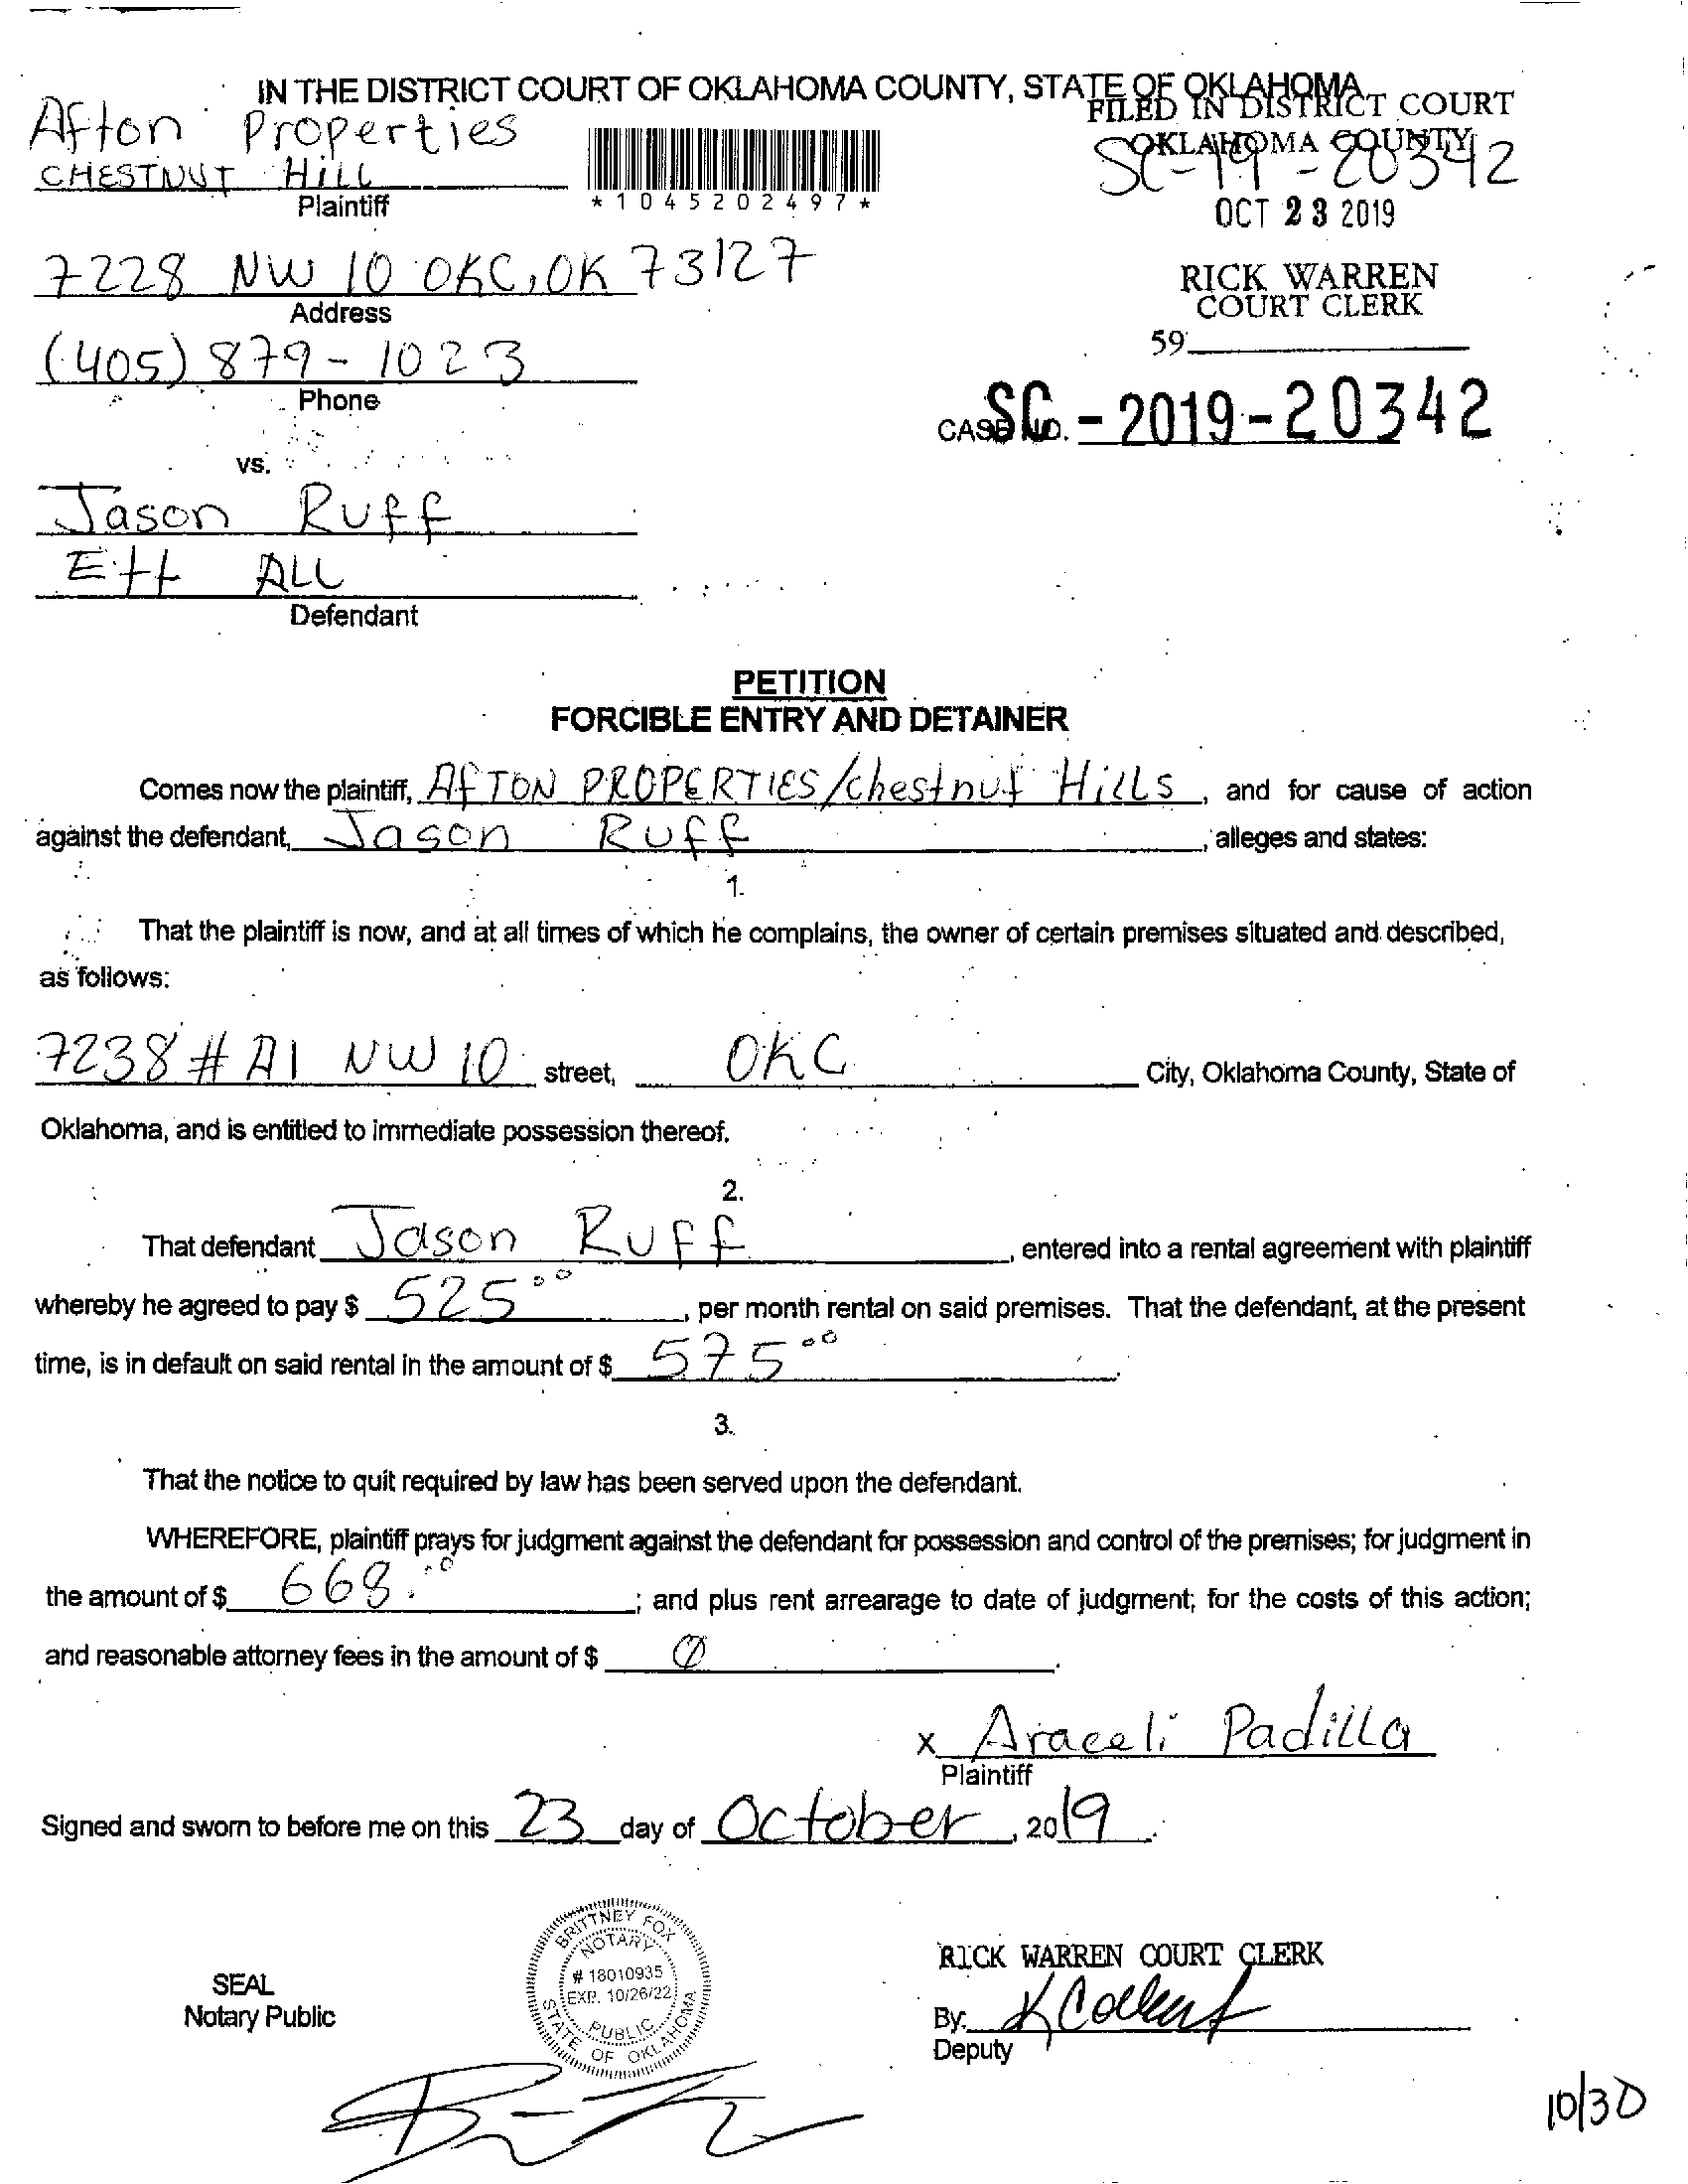 IN THE DISTRICT COURT OF OKLAHOMA COUNTY, STATE OF OKLAHOMA
FILED IN DISTRICT COURT
OKLAHOMA COUNTY
SC-19-20342
OCT 23 2019
RICK WARREN
COURT CLERK
59
Afton Properties
CHESTNUT HiLL
Plaintiff
*1045202497*
7228 NW 10 OKC, OK 73127
Address
(405) 879-1023
Phone
CASE NO. SC - 2019-20342
vs.
Jason Ruff
Ett ALL
Defendant
PETITION
FORCIBLE ENTRY AND DETAINER
Comes now the plaintiff, AfTON PROPERTIES/chestnut HiLLs, and for cause of action
against the defendant, Jason Ruff, alleges and states:
1.
That the plaintiff is now, and at all times of which he complains, the owner of certain premises situated and described,
as follows:
7238 # A1 NW 10 street, OKC City, Oklahoma County, State of
Oklahoma, and is entitled to immediate possession thereof.
2.
That defendant Jason Ruff, entered into a rental agreement with plaintiff
whereby he agreed to pay $ 525.00, per month rental on said premises. That the defendant, at the present
time, is in default on said rental in the amount of $ 575.00.
3.
That the notice to quit required by law has been served upon the defendant.
WHEREFORE, plaintiff prays for judgment against the defendant for possession and control of the premises; for judgment in
the amount of $ 668.00; and plus rent arrearage to date of judgment; for the costs of this action;
and reasonable attorney fees in the amount of $ 0.
x Araceli Padilla
Plaintiff
Signed and sworn to before me on this 23 day of October, 2019.
BRITTNEY FOX
NOTARY
# 18010935
EXP. 10/26/22
PUBLIC
STATE OF OKLAHOMA
SEAL
Notary Public
RICK WARREN COURT CLERK
By:
Deputy
10/30